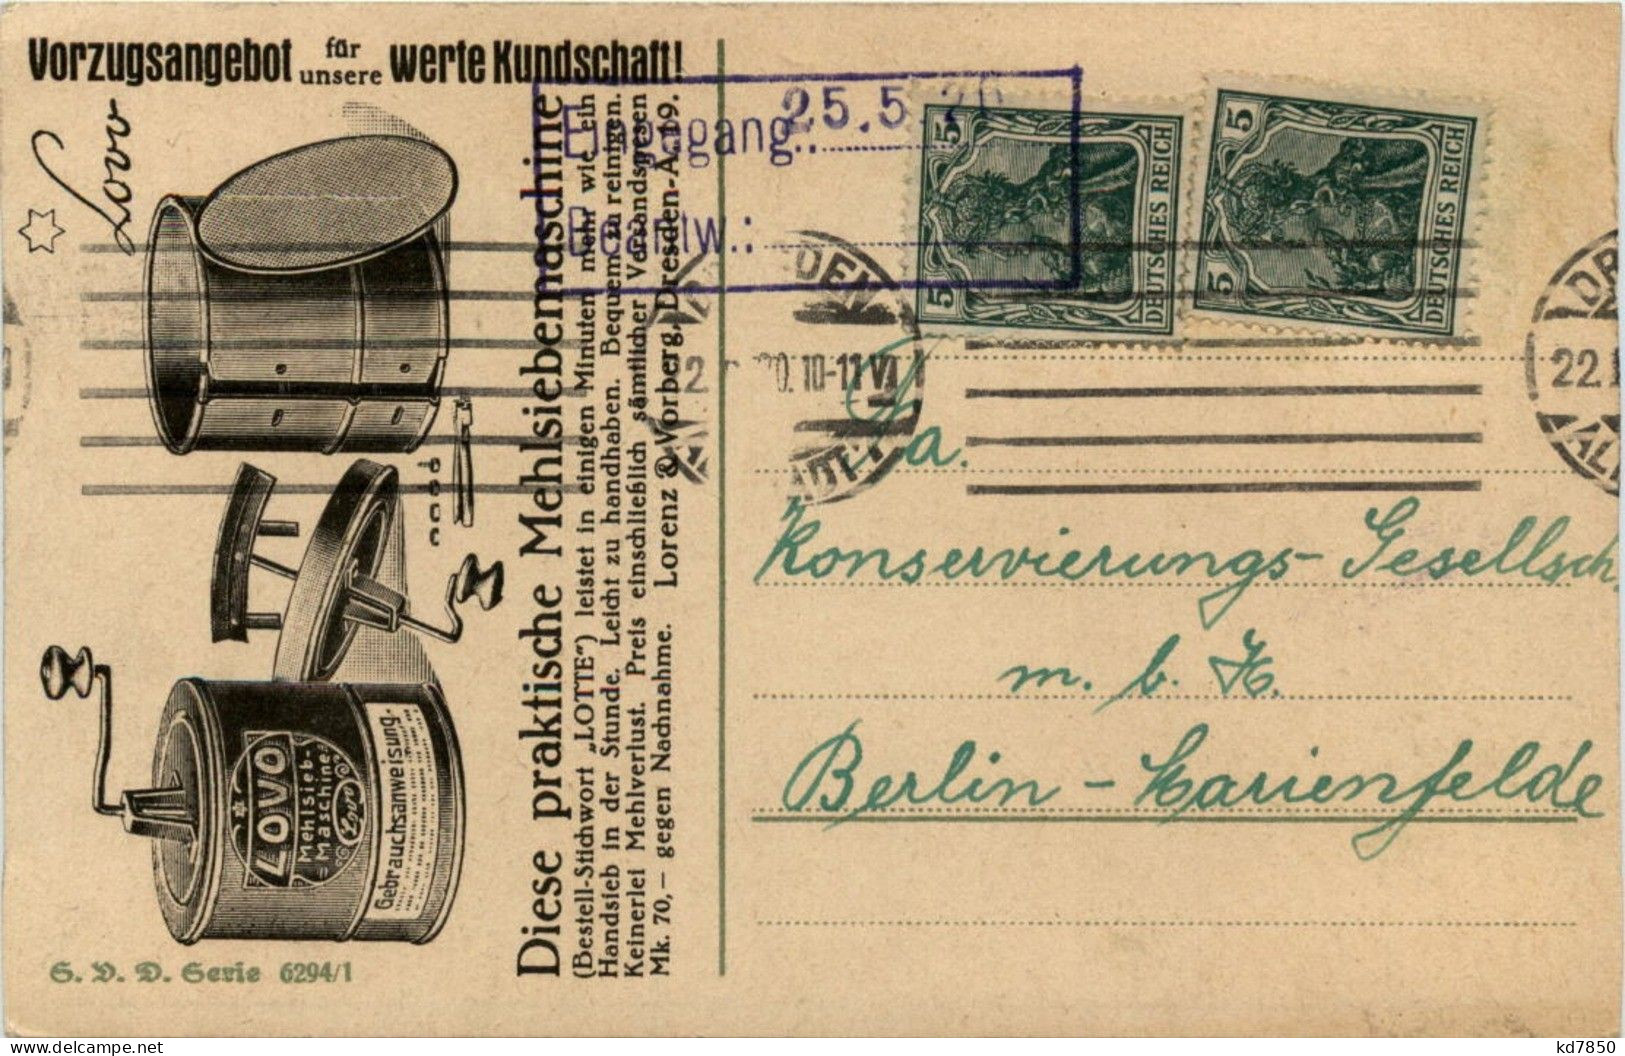 Vorzugsangebot für unsere werte Kundschaft!
Lovo
LOVO
Mehlsieb-
Maschine
Lovo
Gebrauchsanweisung.
S. V. D. Serie 6294/1
Diese praktische Mehlsiebemaschine
(Bestell-Stichwort „LOTTE“) leistet in einigen Minuten mehr wie ein
Handsieb in der Stunde. Leicht zu handhaben. Bequem zu reinigen.
Keinerlei Mehlverlust. Preis einschließlich sämtlicher Versandspesen
Mk. 70,— gegen Nachnahme. Lorenz & Vorberg, Dresden-A. 19.
Eingegang.: 25.5.20
Beantw.:
5
5
DEUTSCHES REICH
5
5
DEUTSCHES REICH
10-11 V
22.
Fa.
Konservierungs-Gesellsch.
m. b. H.
Berlin - Marienfelde
delcampe.net
kd7850